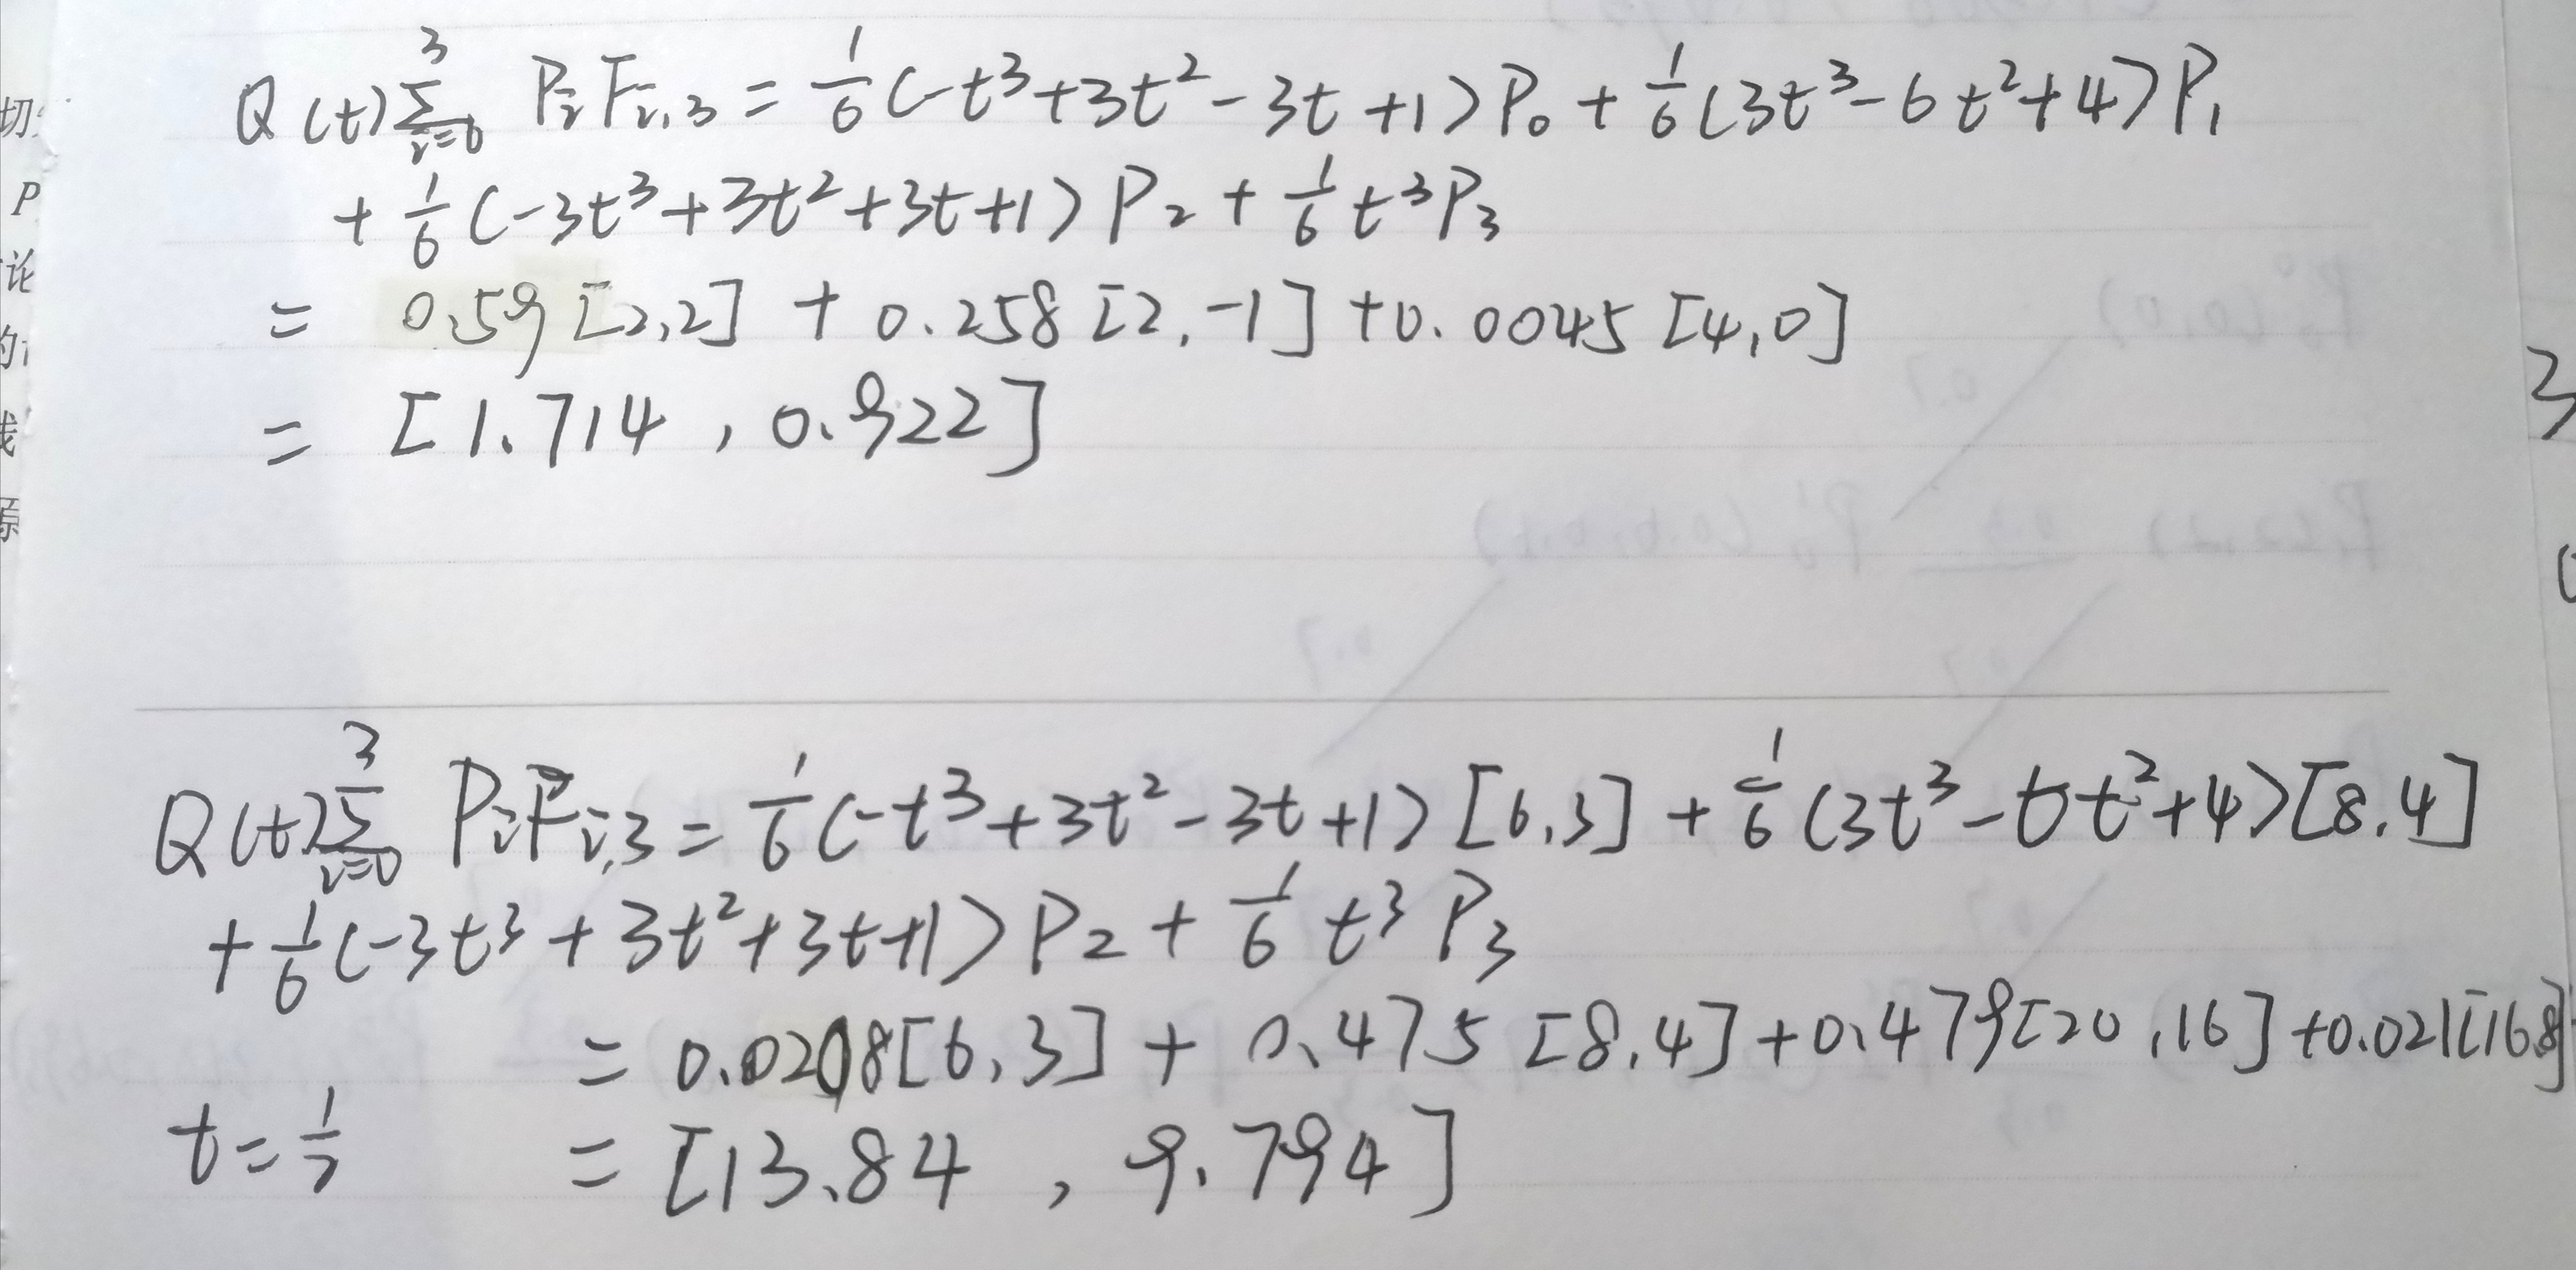 Q(t) \sum_{i=0}^{3} P_i F_{i,3} = \frac{1}{6}(-t^3+3t^2-3t+1)P_0 + \frac{1}{6}(3t^3-6t^2+4)P_1
+ \frac{1}{6}(-3t^3+3t^2+3t+1)P_2 + \frac{1}{6}t^3P_3
= 0.59[2,2] + 0.258[2,-1] + 0.0045[4,0]
= [1.714, 0.922]
Q(t) \sum_{i=0}^{3} P_i F_{i,3} = \frac{1}{6}(-t^3+3t^2-3t+1)[6,3] + \frac{1}{6}(3t^3-6t^2+4)[8.4]
+ \frac{1}{6}(-3t^3+3t^2+3t+1)P_2 + \frac{1}{6}t^3P_3
= 0.0208[6,3] + 0.475[8,4] + 0.479[20,16] + 0.021[16.8]
t = \frac{1}{2} = [13.84, 9.794]
切
P
论
的
3